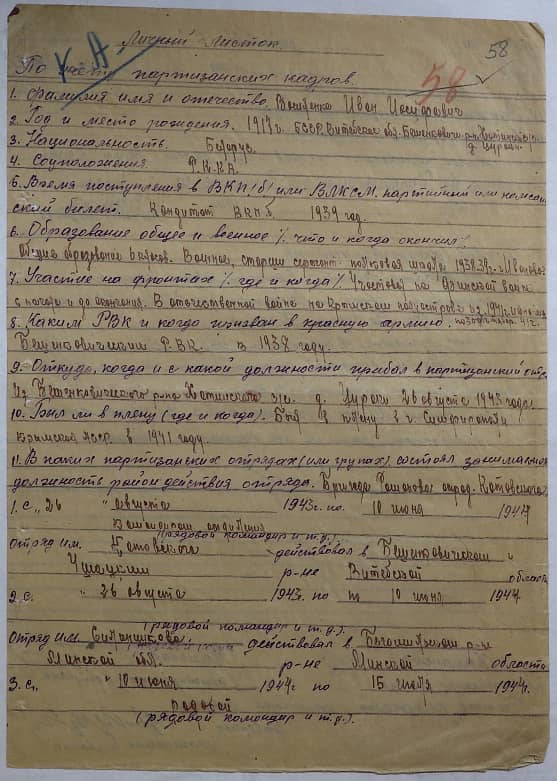 58
58
Личный Листок
По части партизанских кадров.
1. Фамилия имя и отечество. Иван Иосифович
2. Год и место рождения. 1917 г. БССР Витебская обл. Бешенковичи р-н
3. Национальность. Белорус.
4. Соцположения Р.К.К.А.
5. Время поступления в ВКП(б) или ВЛКСМ. партийный или комсо
ский билет. Кондитат В.К.П.б. 1939 год.
6. Образование общее и военное % что и когда окончил %
Общее образование Военное, старши сержант полковая школа 1938-39 г. г. Иваново
7. Участие на фронтах % где и когда % Участвовал на Финской войне
с начала и до окончания. В отечественной войне на Крымском полуострове из 1941 г.
8. Каким РВК и когда призван в красную армию.
Бешенковичским РВК. в 1938 году.
9. Откудо, когда и с какой должности прибал в партизанский отр.
Из Бешенковичского р-на с/с. д. 26 августа 1943 года.
10. Был ли в плену (где и когда). Был в плену в г. Симфирополь
крымской АССР. в 1941 году.
11. В каких партизанских отрядах (или групах) состоял занимаемая
должность район действия отряда. Бригада отряд. Котовского
1. с „26 " августа 1943 г. по. 10 июня 1944
(рядовой командир и т.д.)
Отряд им. Котовского действовал в Бешенковичском и
Ушацким р-не Витебской области
2. с. " 26 августа 1943. по 10 июня 1944
(рядовой командир и т.д.).
Отряд им. действовал в р-н
Минской обл. р-не Минской области
3. с. " 10 июня 1944 г. по 15 июля 1944 г.
рядовой
(рядовой командир и т.д.).